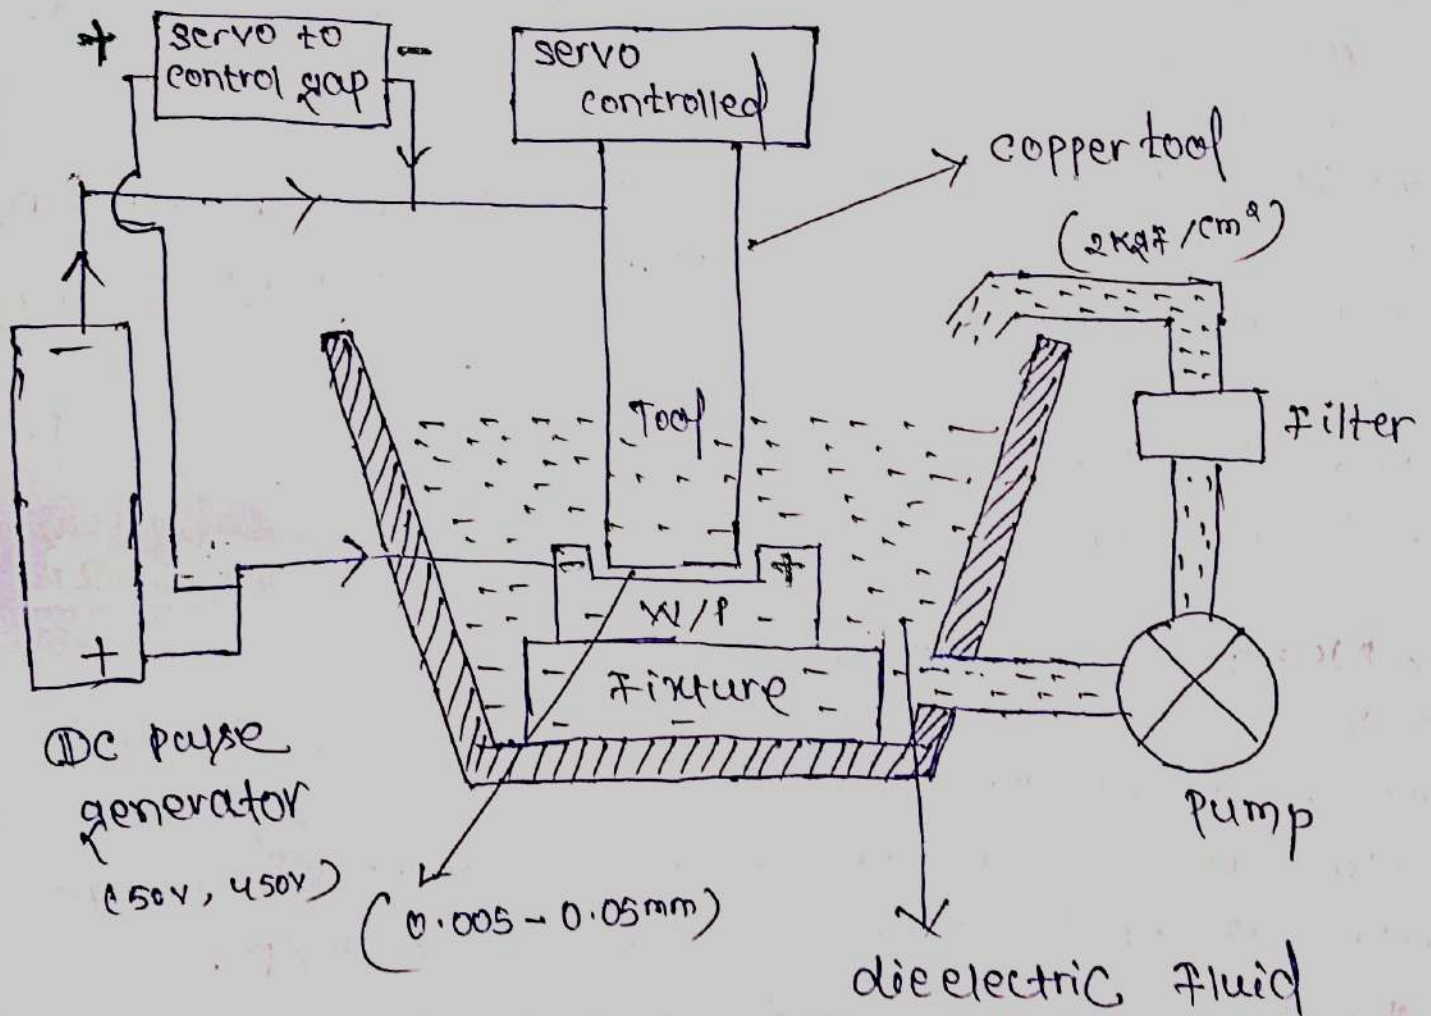 +
servo to
control gap
-
servo
controlled
copper tool
(2Kgf/cm²)
-
Tool
Filter
-
+
W/P
+
Fixture
DC pulse
generator
(50V, 450V)
(0.005 - 0.05mm)
Pump
dieelectric Fluid